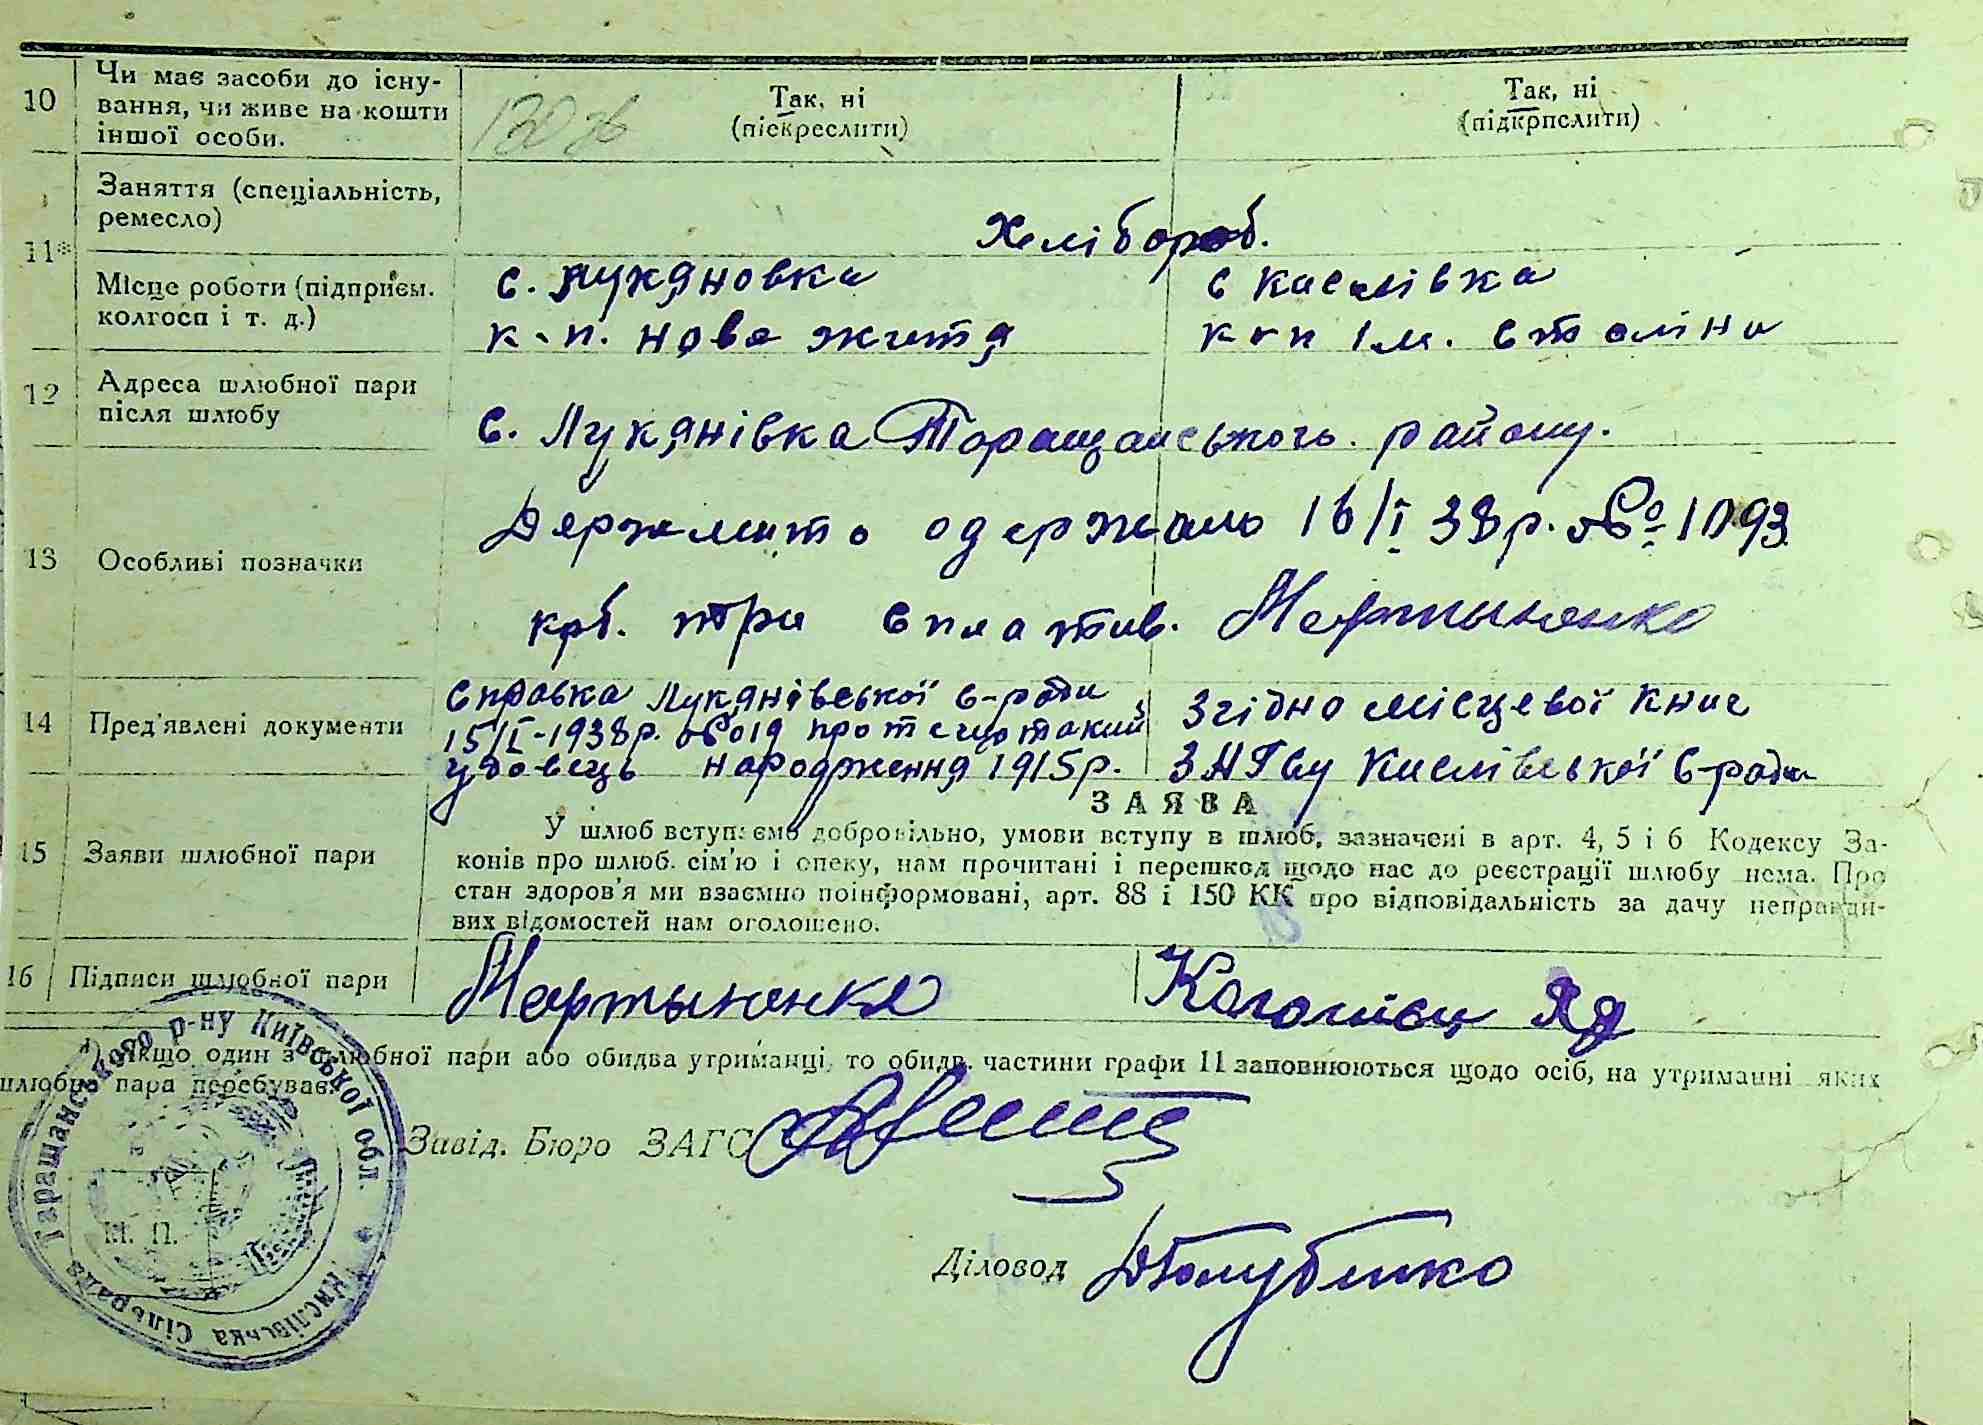 10 Чи має засоби до існу-
вання, чи живе на кошти
іншої особи.
Так, ні
(піскреслити)
Так, ні
(підкрпслити)
11*
Заняття (спеціальність,
ремесло)
Хлібороб.
Місце роботи (підприєм.
колгосп і т. д.)
с. Лукяновка
к-п. нове життя
с Кислівка
к-п ім. Сталіна
12 Адреса шлюбної пари
після шлюбу
с. Лукянівка Таращанського. району.
13 Особливі позначки
Держмито одержано 16/I 38р. № 1093
крб. три сплатив. Мартыненко
14 Пред'явлені документи
Справка Лукянівської с-ради
15/I-1938р. №019 про те що такий
удовець народження 1915р.
Згідно місцевої книг
ЗАГсу Кислівської с-ради
15 Заяви шлюбної пари
ЗАЯВА
У шлюб вступаємо добровільно, умови вступу в шлюб, зазначені в арт. 4, 5 і 6 Кодексу За-
конів про шлюб. сім'ю і опеку, нам прочитані і перешкод щодо нас до реєстрації шлюбу нема. Про
стан здоров'я ми взаємно поінформовані, арт. 88 і 150 КК про відповідальність за дачу неправди-
вих відомостей нам оголошено.
16 Підписи шлюбної пари
Мартыненко
*) Якщо один з шлюбної пари або обидва утриманці, то обидв. частини графи 11 заповнюються щодо осіб, на утриманні яких
шлюбна пара перебуває.
Завід. Бюро ЗАГС
Діловод
М. П.
Таращанського р-ну Київської обл.
Кислівська Сільрада